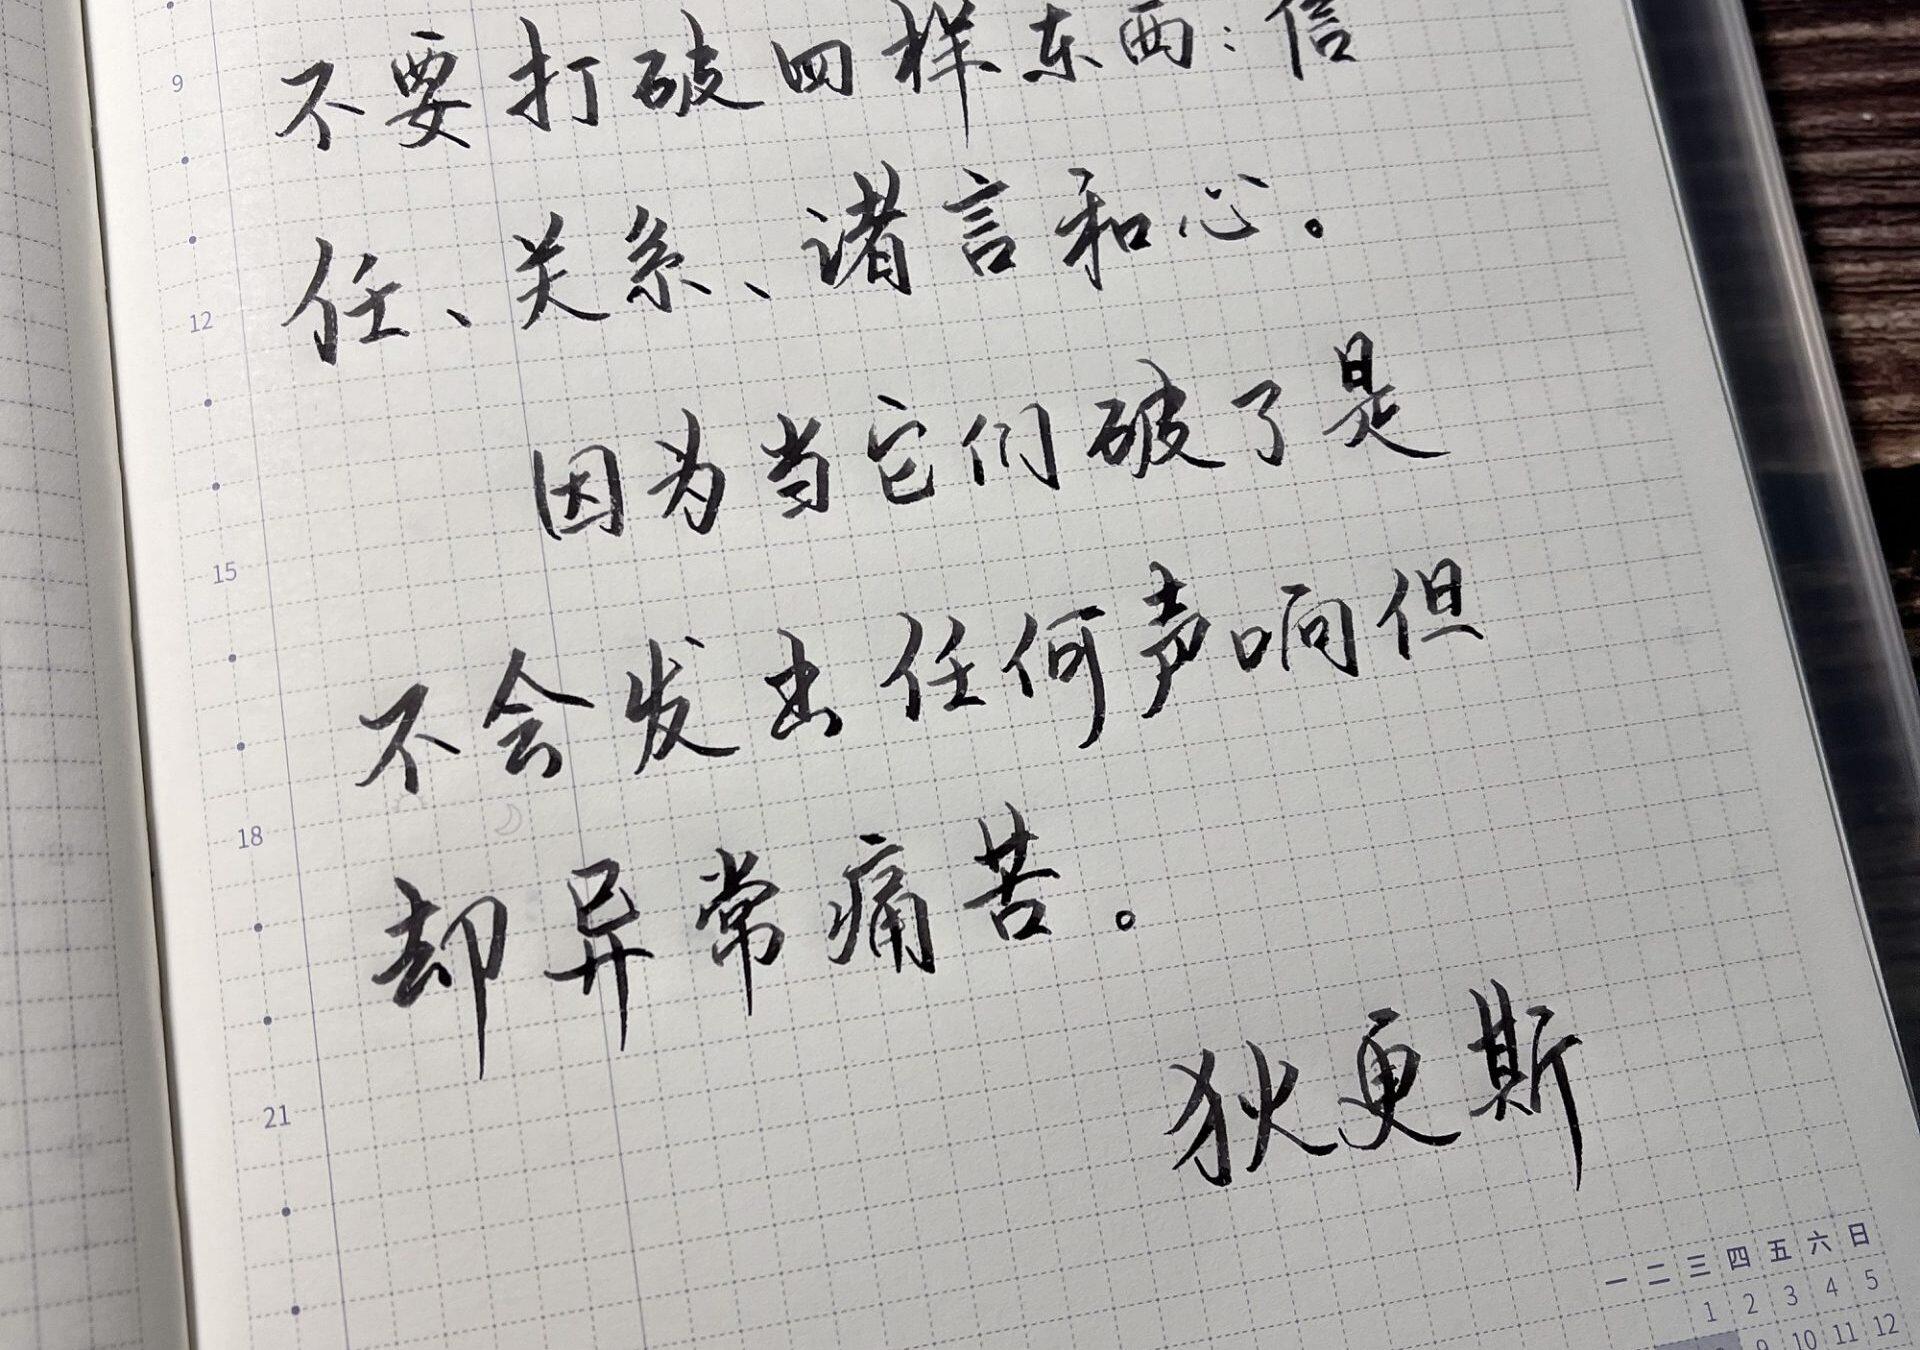 9
不要打破四样东西：信
任、关系、诸言和心。
12
因为当它们破了是
15
不会发出任何声响但
18
却异常痛苦。
21
狄更斯
一 二 三 四 五 六 日
1 2 3 4 5
9 10 11 12